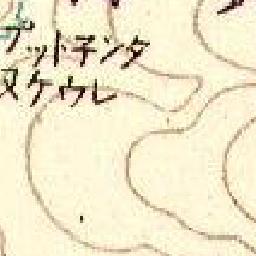 プット子ンタ
ヌケウレ